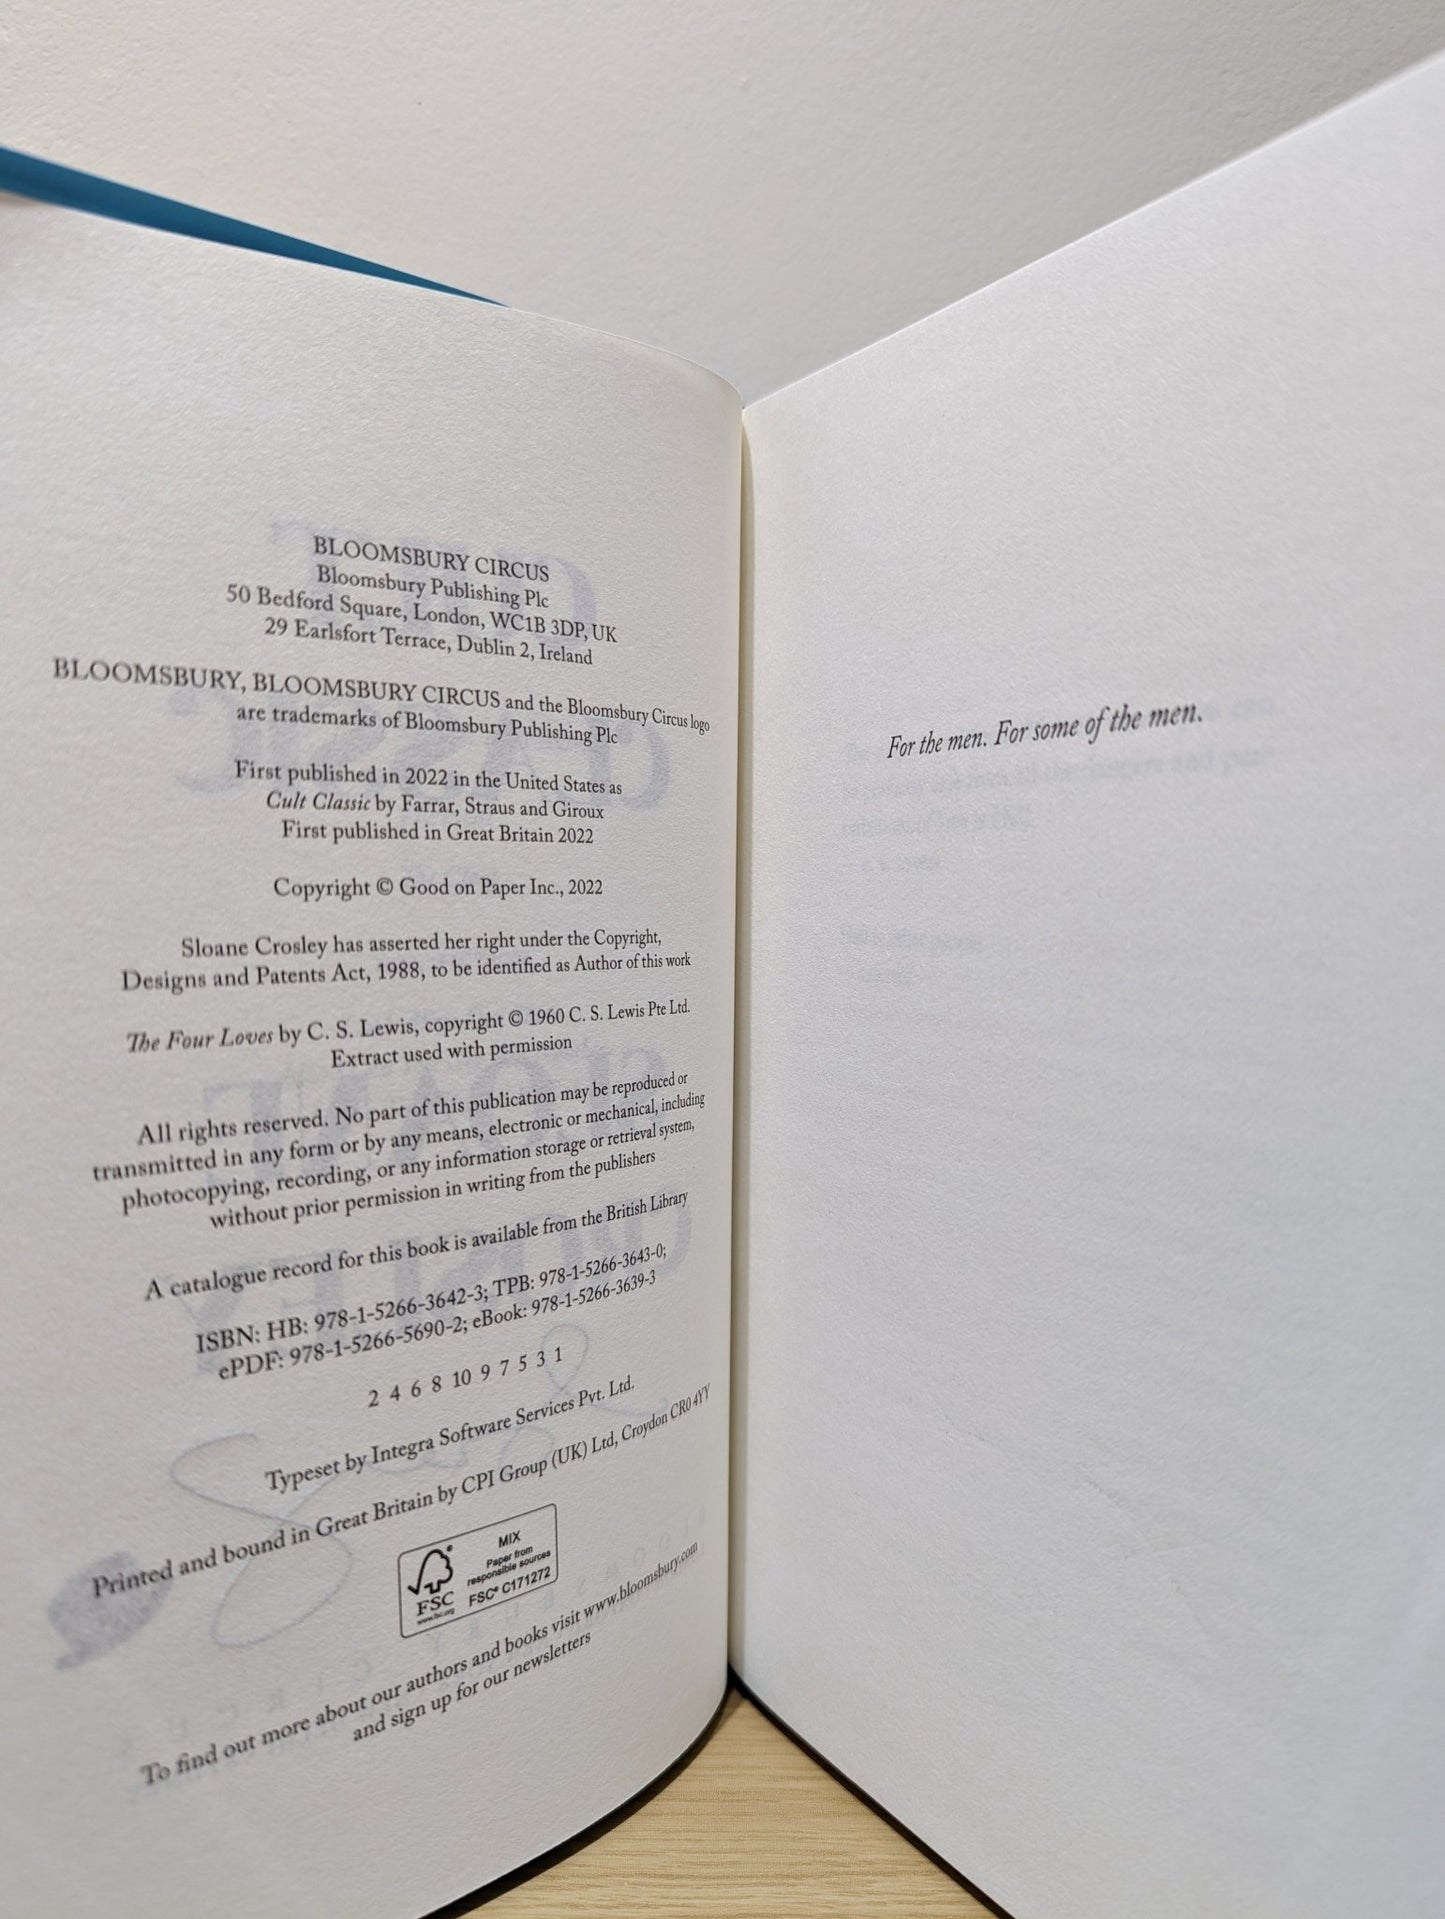 BLOOMSBURY CIRCUS
Bloomsbury Publishing Plc
50 Bedford Square, London, WC1B 3DP, UK
29 Earlsfort Terrace, Dublin 2, Ireland
BLOOMSBURY, BLOOMSBURY CIRCUS and the Bloomsbury Circus logo
are trademarks of Bloomsbury Publishing Plc
First published in 2022 in the United States as
Cult Classic by Farrar, Straus and Giroux
First published in Great Britain 2022
Copyright © Good on Paper Inc., 2022
Sloane Crosley has asserted her right under the Copyright,
Designs and Patents Act, 1988, to be identified as Author of this work
The Four Loves by C. S. Lewis, copyright © 1960 C. S. Lewis Pte Ltd.
Extract used with permission
All rights reserved. No part of this publication may be reproduced or
transmitted in any form or by any means, electronic or mechanical, including
photocopying, recording, or any information storage or retrieval system,
without prior permission in writing from the publishers
A catalogue record for this book is available from the British Library
ISBN: HB: 978-1-5266-3642-3; TPB: 978-1-5266-3643-0;
ePDF: 978-1-5266-5690-2; eBook: 978-1-5266-3639-3
2 4 6 8 10 9 7 5 3 1
Typeset by Integra Software Services Pvt. Ltd.
Printed and bound in Great Britain by CPI Group (UK) Ltd, Croydon CR0 4YY
FSC
www.fsc.org
MIX
Paper from
responsible sources
FSC® C171272
To find out more about our authors and books visit www.bloomsbury.com
and sign up for our newsletters
For the men. For some of the men.